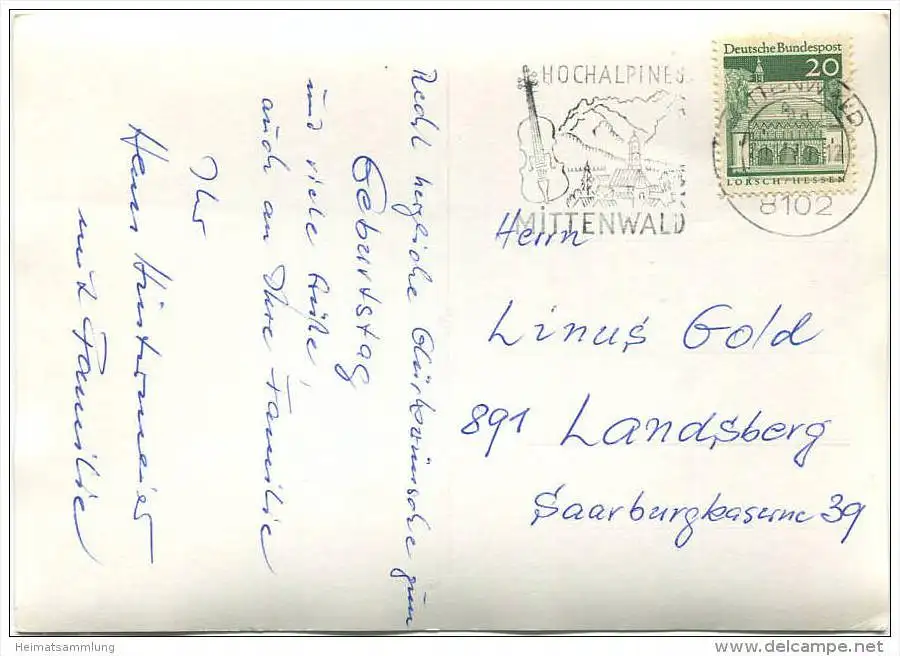 Recht herzliche Glückwünsche zum
Geburtstag
und viele Grüße
auch an Ihre Familie
Ihr
Hans
mit Familie
HOCHALPINES
MITTENWALD
Deutsche Bundespost
20
LORSCH/HESSEN
MITTENWALD
8102
Herrn
Linus Gold
891 Landsberg
Saarburgkaserne 39
Heimatsammlung
delcampe.net